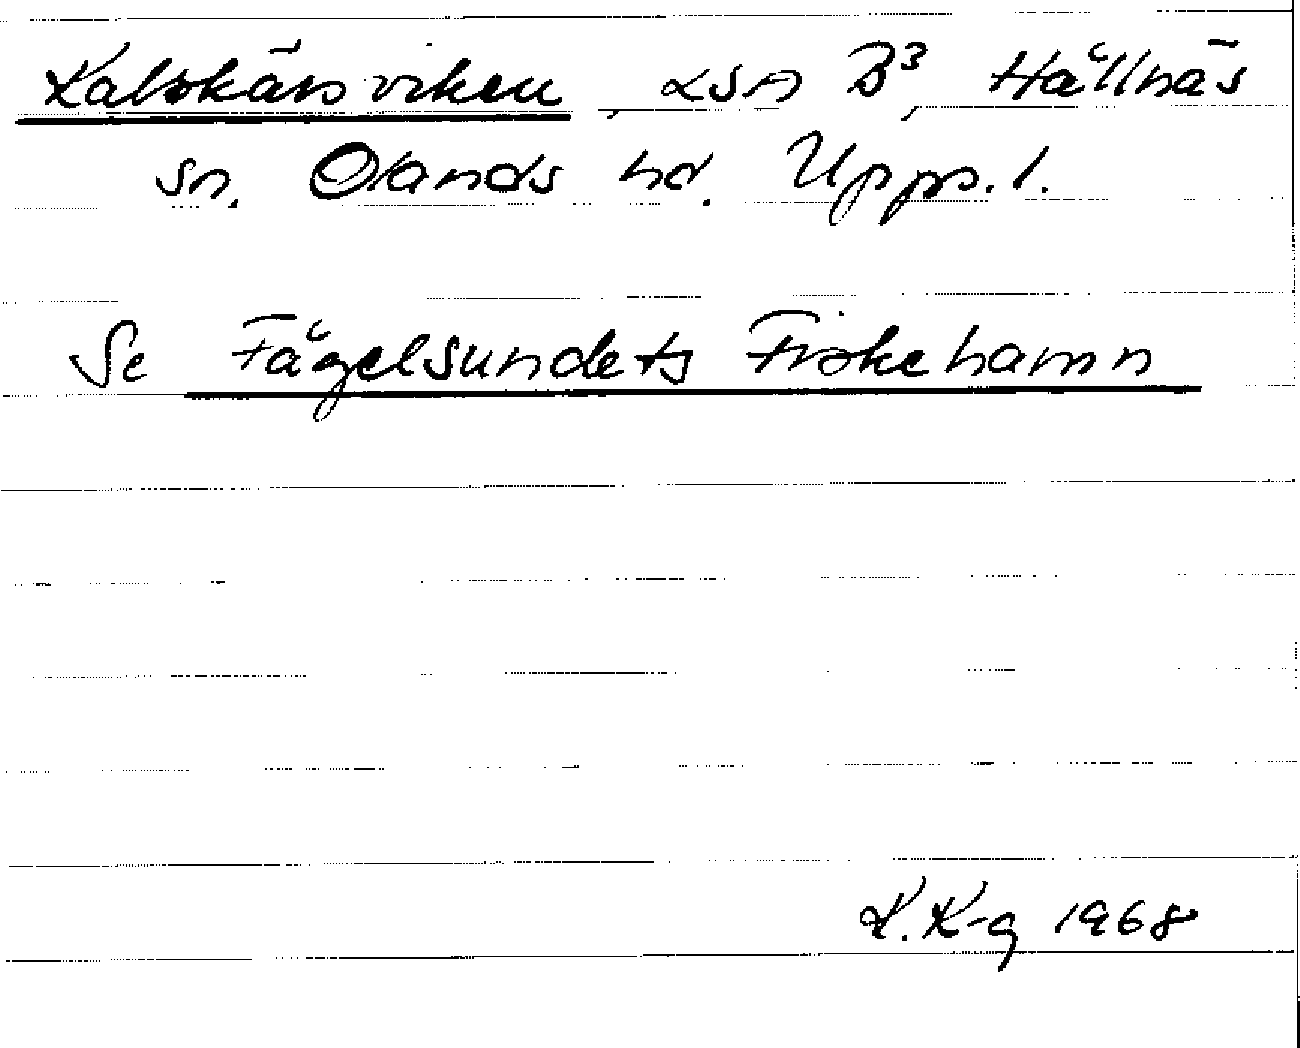 Kalvskärsviken, LSA B³, Hållnäs
sn. Olands hd. Upps. l.
Se Fågelsundets Fiskehamn
K. K-g 1968